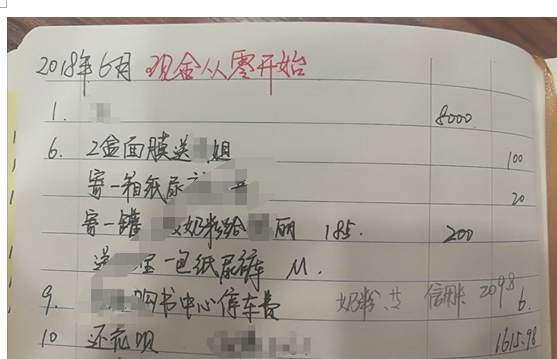 2018年6月 现金从零开始
1. 8000
6. 2盒面膜送 姐 100
寄一箱纸尿 20
寄一罐 奶粉给 丽 185. 200
送 里一包纸尿裤 M.
9. 购书中心停车费 奶粉 共 信用卡 2098 6.
10 还花呗 1615.98